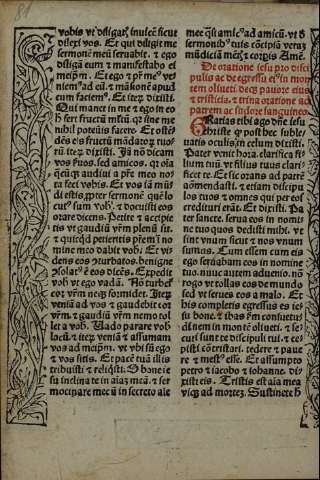 81
vobis vt diligatis inuicē sicut
dilexi vos. Et qui diligit me
sermonē meū seruabit. ⁊ ego
diligā eum ⁊ manifestabo ei
meipm̄. Et ego ⁊ pr̄ me⁹
niem⁹ ad eū. ⁊ māsionē apud
eum faciem⁹. Et iteꝝ dixisti.
Qui manet in me ⁊ ego in eo
h̄ fert fructū multū qꝛ sine me
nihil poteris facere. Et ostē
dēs eis fructū
teꝝ dixisti. Iā nō dicam
vos suos. sed amicos. qꝛ oīa
quecūqꝫ audiui a pr̄e meo no
ta feci vobis. Et vos iā mū
di estis propter sermonē quē lo
cut⁹ sum vob̄. ⁊ docuisti eos
orare dicens. Petite ⁊ accipie
tis vt gaudiū vr̄m plenū sit.
⁊ quicqd petieritis
mine meo dabit vob̄. Et vi
dens eos ꝯturbatos. benigne
ꝯsolat⁹ ē eos dicēs. Expedit
vob̄ vt ego vadā. Nō turbet̄
cor vr̄m neqꝫ formidet. Iteꝝ
veniā ad vos ⁊ gaudebit cor
vr̄m. ⁊ gaudiū vr̄m nemo tol
let a vob̄. Vado parare vob̄
locū. ⁊ iteꝝ veniā ⁊ assumam
vos ad meipm̄. vt vbi sū ego
⁊ vos sitis. Et pacē tuā illis
tribuisti ⁊ reliqsti. O bone ie
su inclina te in aīaꝫ meā. ⁊ ser
mocinare mecū in secreto ale
mec qsi amic⁹ ad amicū. vt d
sermonib⁹ tuis
mūdiciā mēt⁊ ⁊ corpis Amē.
De oratione iesu pro disci
pulis ac de egressu ei⁹ in mon
tem oliueti. deqꝫ pauore eius
⁊ tristicia. ⁊ trina oratione ad
patrem ac sudore sanguineo.
Gratias tibi ago dn̄e iesu
christe qꝛ post hec suble
uatis oculis in celum dixisti.
Pater venit hora. clarifica fi
lium tuū. vt filius tuus clari
ficet te. Et sic orans ad patrē
cōmendasti. ⁊ etiam discipu
los tuos ⁊ omnes qui per eos
credituri erāt. Et dixisti. Pa
ter sancte. serua eos in nomi
ne tuo quos dedisti mihi. vt
sint vnum sicut ⁊ nos vnum
sumus. Cum essem cum eis
ego seruabam eos in nomine
tuo. nunc autem ad te venio. nō
rogo vt tollas eos de mundo
sed vt serues eos a malo. Et
his completis egressus es ie
su bone. ⁊ ibas
dinem in montē oliueti. ⁊ se
cuti sunt te discipuli tui. ⁊ ce
pisti cōtristari. tedere ⁊ paue
re ⁊ mest⁹ esse. Et assumpto
petro ⁊ iacobo ⁊ iohanne. di
xisti eis. Tristis est aīa mea
vsqꝫ ad morteꝫ. Sustinete h̄